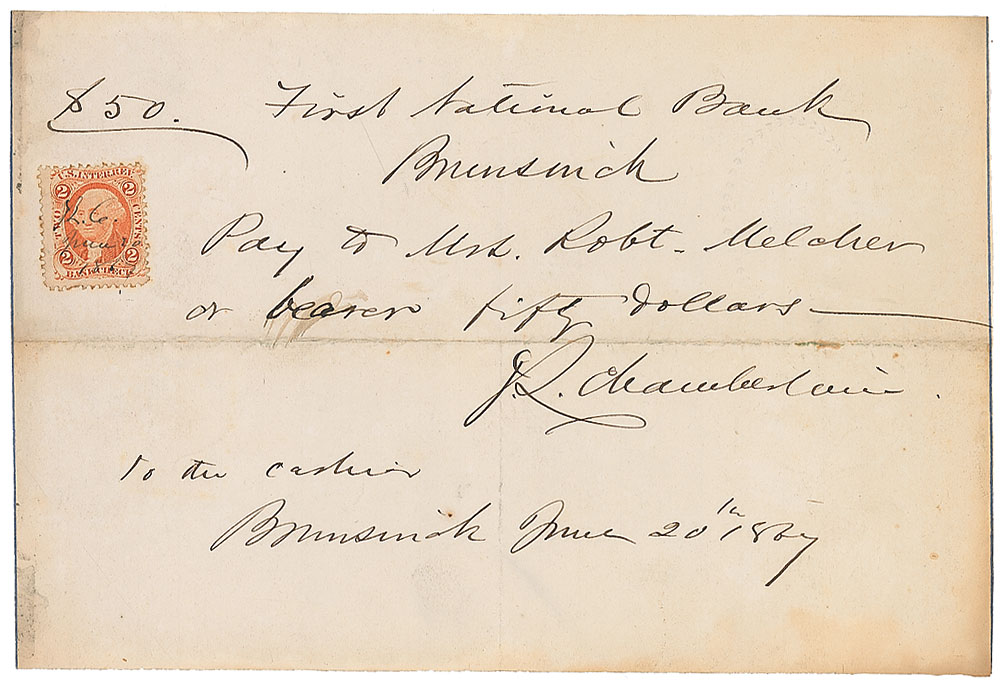 $50. First National Bank
Brunswick
U.S. INTER. REV.
2 2
TWO CENTS
J.L.C.
June 20
2 2
BANK CHECK
Pay to Mrs. Robt. Melcher
or bearer fifty dollars
J.L. Chamberlain.
To the cashier
Brunswick June 20th 1867